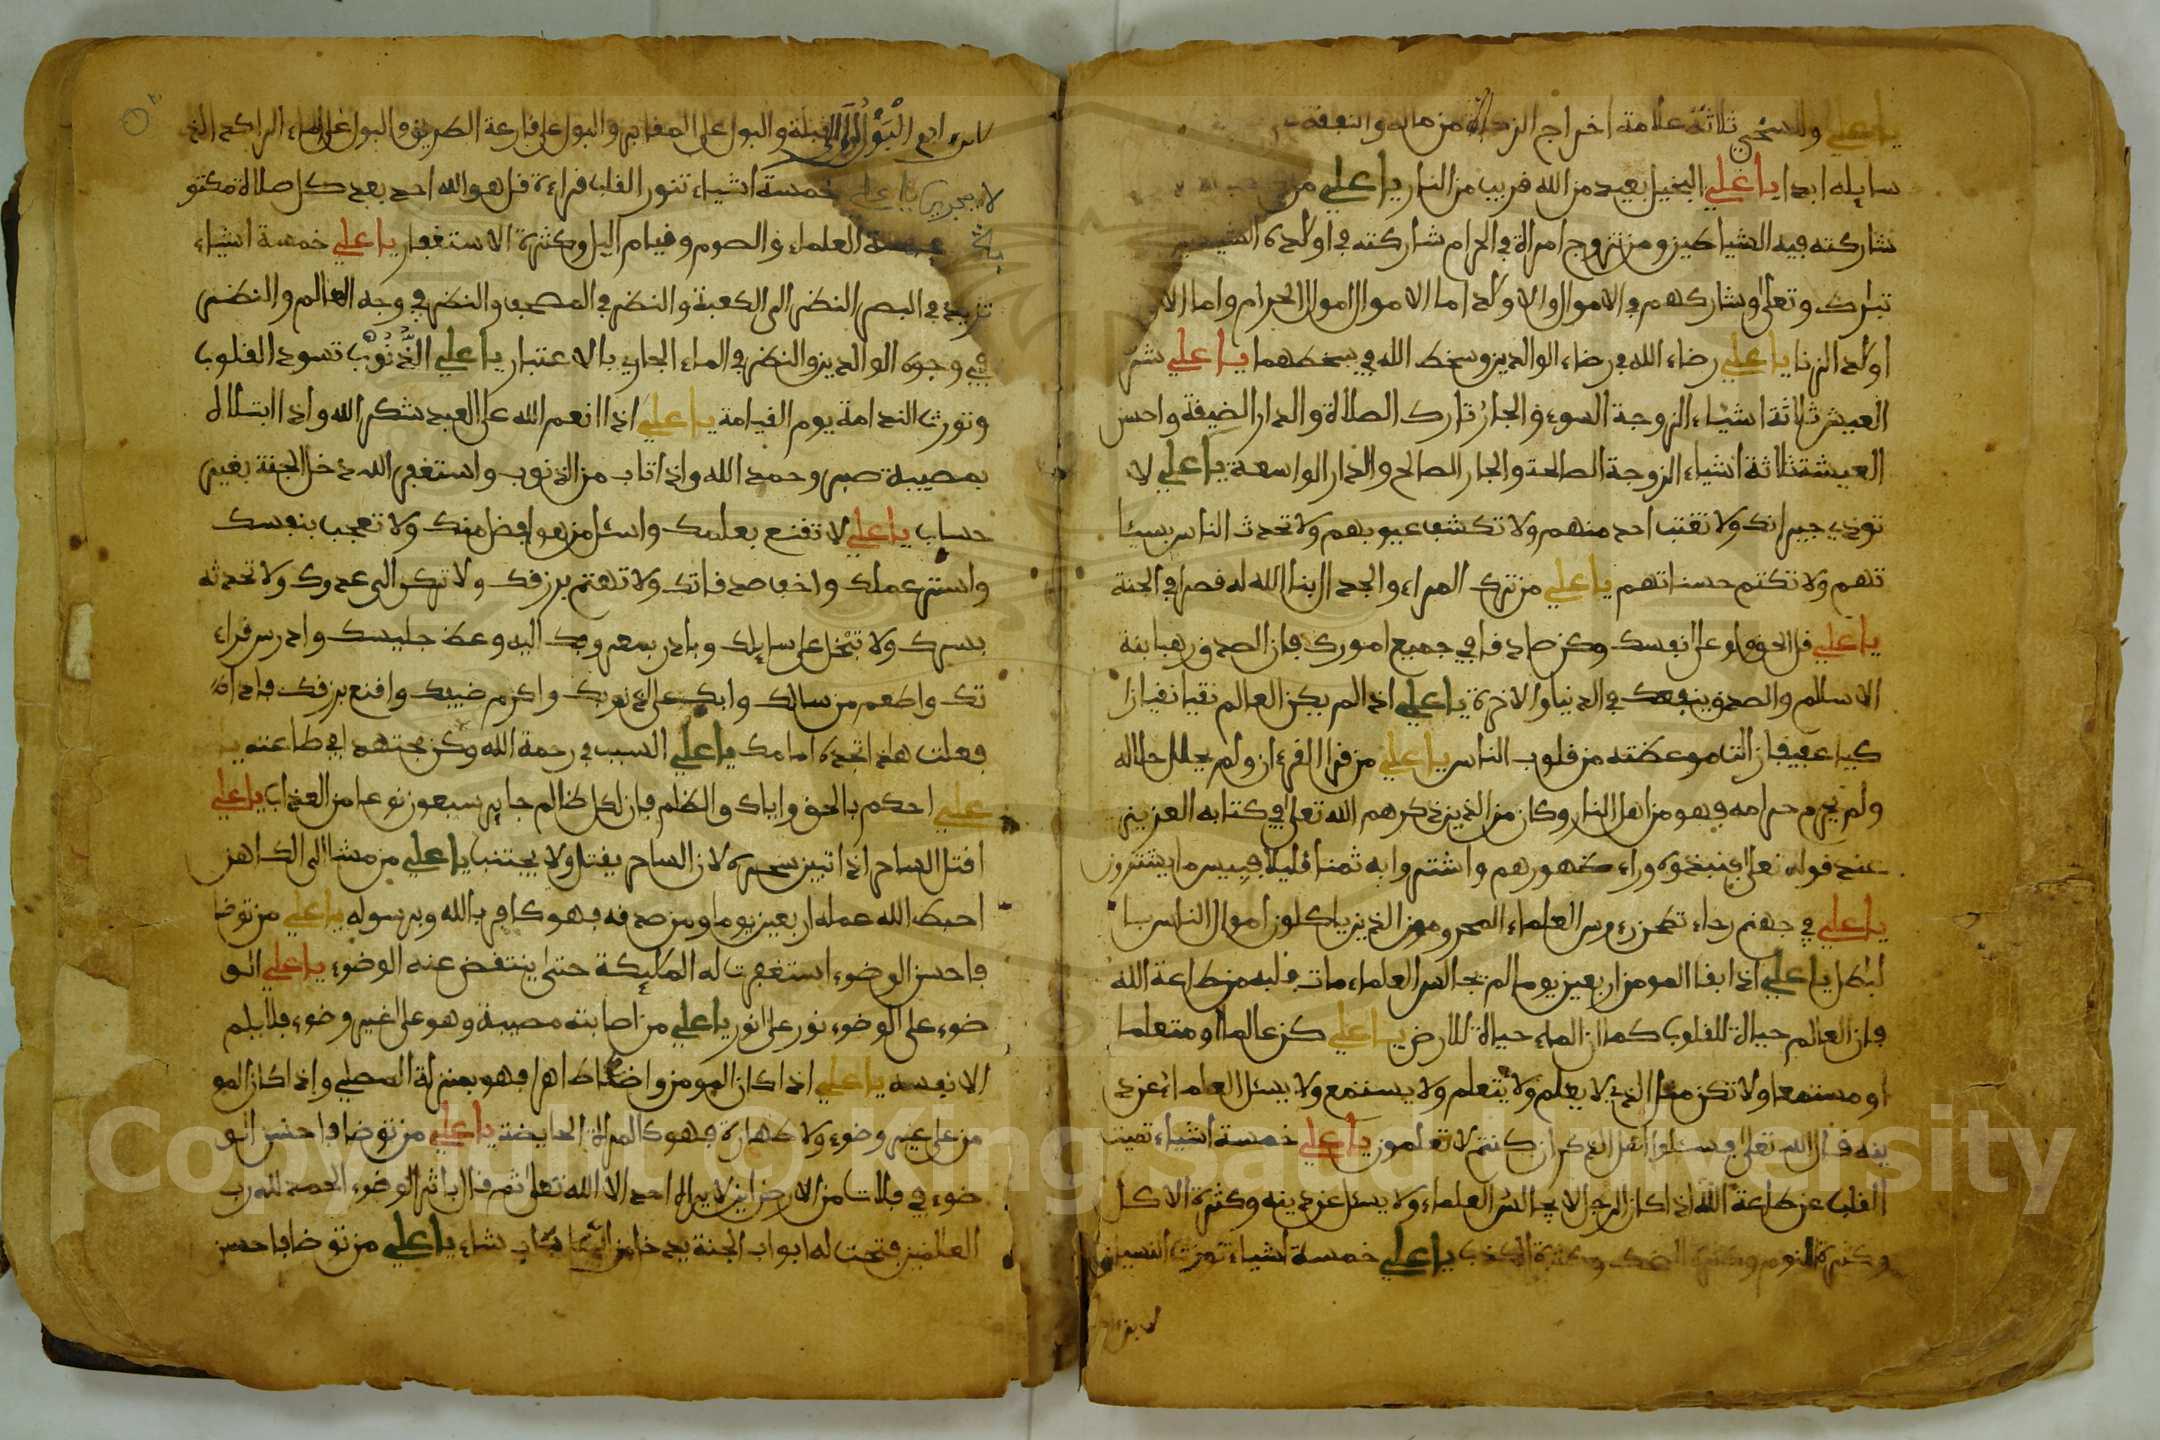 يا علي وللسخي ثلاثة علامة اخراج الزكاة من ماله والنفقة
سايله ابدا يا علي البخيل بعيد من الله قريب من النار يا علي من
شاركته فيه الشياطين ومن تزوج امراة في الحرام شاركته في اولاده
تبارك وتعلى وشاركهم في الاموال والاولاد اما الاموال اموال الحرام واما
اولاد الزنا يا علي رضاء الله في رضاء الوالدين وسخط الله في سخطهما يا علي شر
العيش ثلاثة اشياء الزوجة السوء والجار تارك الصلاة والدار الضيقة واحسن
العيشة ثلاثة اشياء الزوجة الصالحة والجار الصالح والدار الواسعة يا علي لا
توذي جيرانك ولا تغتب احد منهم ولا تكشف عيوبهم ولا تحدث الناس بسيئا
تهم ولا تكتم حسناتهم يا علي من ترك المراء والجدال بنا الله له قصرا في الجنة
يا علي قل الحق ولو على نفسك وكن صادقا في جميع امورك فان الصدق رهبانة
الاسلام والصدق ينفعك في الدنيا والاخرة يا علي اذا لم يكن العالم نقيا تقيا زا
كيا عفيفا زالت موعظته من قلوب الناس يا علي من قرا القرءان ولم يحلل حلاله
ولم يحرم حرامه فهو من اهل النار وكان من الذين ذكرهم الله تعلى في كتابه العزيز
عند قوله تعلى فنبذوه وراء ظهورهم واشتروا به ثمنا قليلا فبيس ما يشترون
يا علي في جهنم رحاء تطحن رءوس العلماء المجرمون الذين ياكلون اموال الناس با
لباطل يا علي اذا بقا المومن اربعين يوما لم يجالس العلماء مات قلبه من طاعة الله
فان العالم حياة للقلوب كما ان الماء حياة للارض يا علي كن عالما او متعلما
او مستمعا ولا تكن مثل الذي لا يعلم ولا يتعلم ولا يستمع ولا يسئل العلماء عن د
ينه قال الله تعلى فسئلوا اهل الذكر ان كنتم لا تعلمون يا علي خمسة اشياء تميت
القلب عن طاعة الله اذا كان الرجل لا يجالس العلماء ولا يسئل عن دينه وكثرة الاكل
وكثرة النوم وكثرة الضحك وكثرة الكذب يا علي خمسة اشياء تورث النسيان
البول الى القبلة والبول على المقابر والبول على قارعة الطريق والبول على الماء الراكد الذي
لا يجري يا علي خمسة اشياء تنور القلب قراءة قل هو الله احد بعد كل صلاة مكتو
بة العلماء والصوم وقيام اليل وكثرة الاستغفار يا علي خمسة اشياء
تزيد في البصر النظر الى الكعبة والنظر في المصحف والنظر في وجه العالم والنظر
في وجوه الوالدين والنظر في الماء الجاري بالاعتبار يا علي الذنوب تسود القلوب
وتورث الندامة يوم القيامة يا علي اذا انعم الله على العبد شكر الله واذا ابتلاه
بمصيبة صبر وحمد الله واذا تاب من الذنوب واستغفر الله دخل الجنة بغير
حساب يا علي لا تقنع بعلمك واسئل من هو افضل منك ولا تعجب بنفسك
واستر عملك واخف صدقاتك ولا تهتم برزقك ولا تركن الى عدوك ولا تحدثه
بسرك ولا تبخل على سايلك وبادر بمعروفك اليه وعظ جليسك وادرس قراء
تك واطعم من سالك وابك على ذنوبك واكرم ضيفك واقنع برزقك فاذا
فعلت هذا تجده امامك يا علي السبب في رحمة الله وكن مجتهدا في طاعته يا
علي احكم بالحق واياك والظلم فان لكل ظالم جاير سبعون نوعا من العذاب يا علي
اقتل الساحر اذا تبين سحره لان الساحر يقتل ولا يجتنب يا علي من مشا الى الكاهن
احبط الله عمله اربعين يوما ومن صدقه فهو كافر بالله وبرسوله يا علي من توضا
فاحسن الوضوء استغفرت له الملايكة حتى ينتقض عنه الوضوء يا علي الو
ضوء على الوضوء نور على نور يا علي من اصابته مصيبة وهو على غير وضوء فلا يلم
الا نفسه يا علي اذا كان المومن واضا طاهرا فهو بمنزلة المصلي واذا كان المو
من على غير وضوء ولا طهارة فهو كالمراة الحايضة يا علي من توضا فاحسن الو
ضوء في فلات من الارض اين لا يراه احد الا الله تعلى ثم قال باثر الوضوء الحمد لله رب
العالمين فتحت له ابواب الجنة يدخل من اي باب شاء يا علي من توضا فاحسن
Copyright © King Saud University